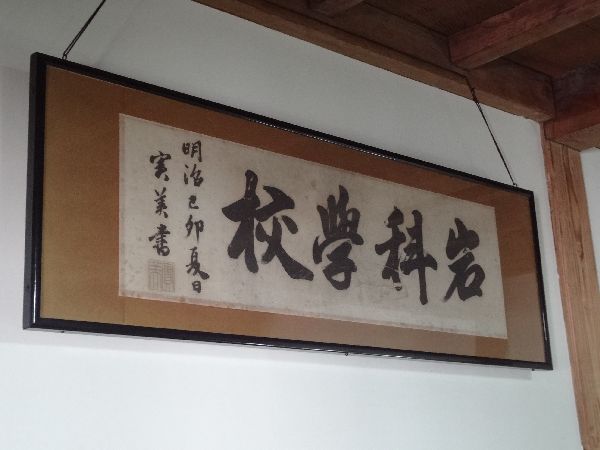 岩科学校
明治己卯夏日
実美書